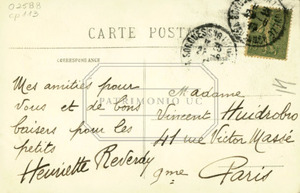 02588
cp113
CARTE POSTALE
CORRESPONDANCE
Mes amitiés pour
vous et de bons
baisers pour les
petits
Henriette Reverdy
Madame
Vincent Huidrobro
41 rue Victor Massé
9me Paris
PATRIMONIO UC